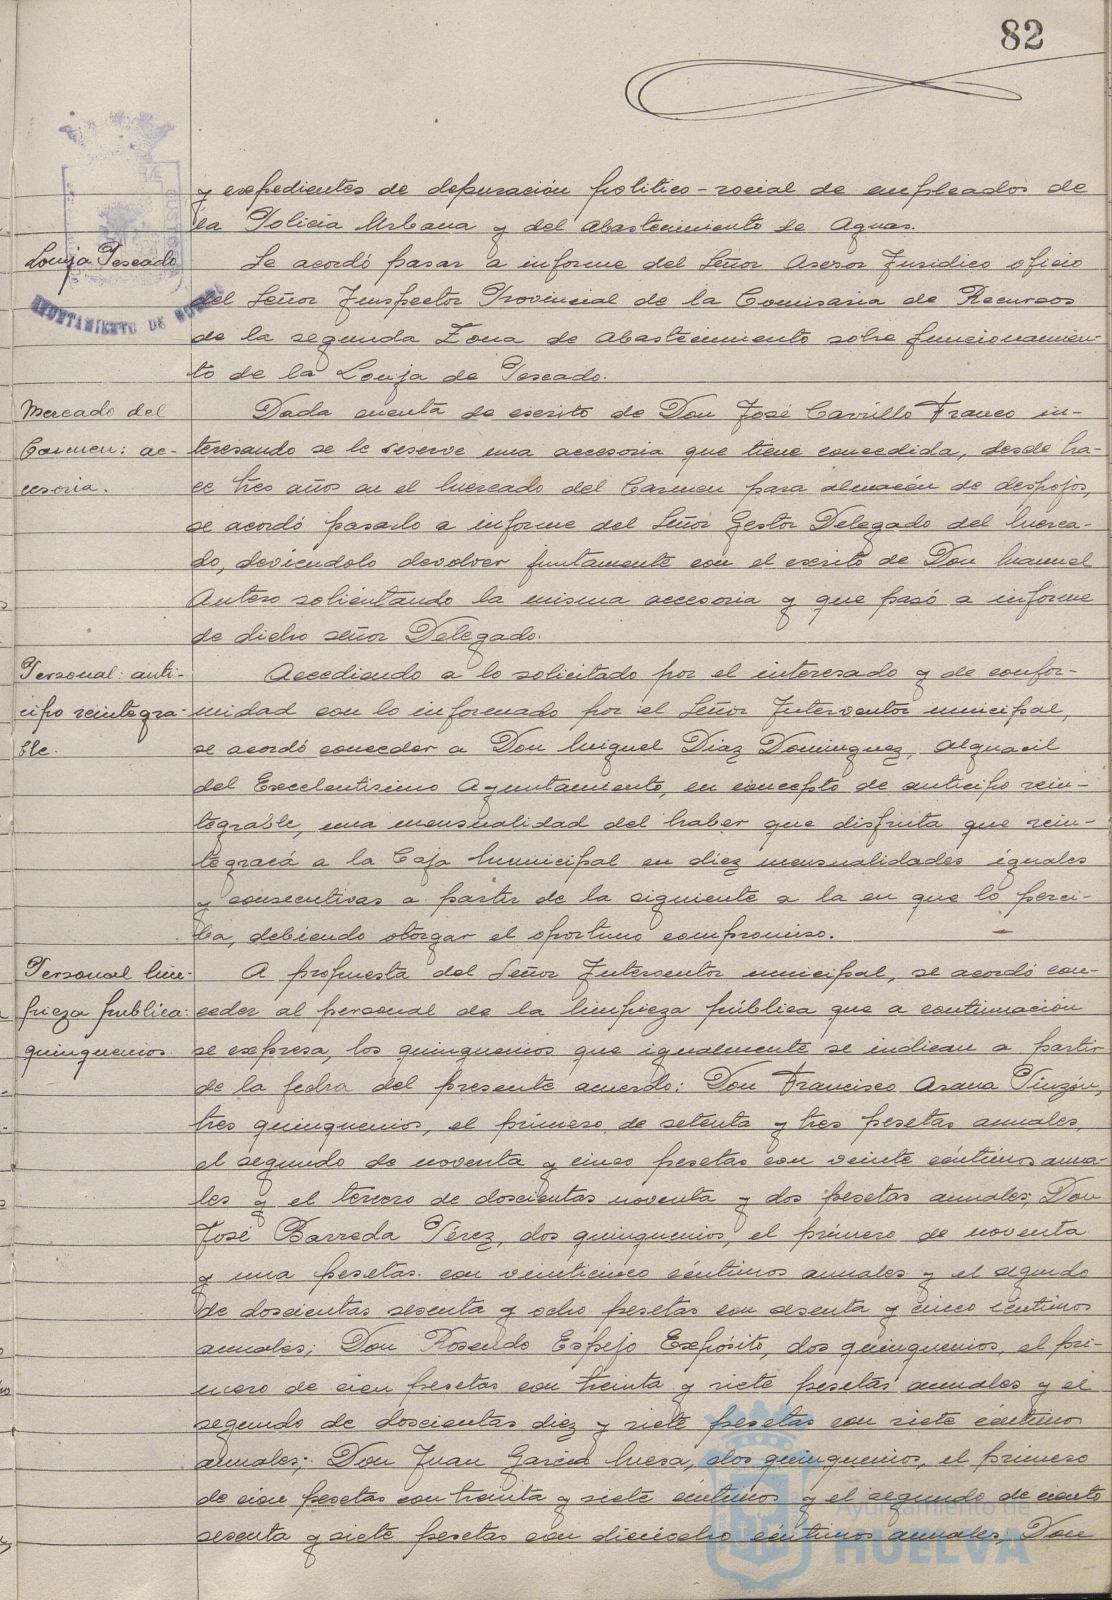 82
y expedientes de depuración político-social de empleados de
la Policía Urbana y del Abastecimiento de Aguas.
Lonja Pescado
Se acordó pasar a informe del Señor Asesor Jurídico oficio
del Señor Inspector Provincial de la Comisaria de Recursos
AYUNTAMIENTO DE HUELVA
de la segunda Zona de Abastecimiento sobre funcionamien-
to de la Lonja de Pescado.
Mercado del
Carmen: ac-
cesoria.
Dada cuenta de escrito de Don José Carrillo Franco in-
teresando se le reserve una accesoria que tiene concedida, desde ha-
ce tres años en el Mercado del Carmen para almacén de despojos,
se acordó pasarlo a informe del Señor Gestor Delegado del Merca-
do, deviéndolo devolver juntamente con el escrito de Don Manuel
Antero solicitando la misma accesoria y que pasó a informe
de dicho señor Delegado.
Personal: anti-
cipo reintegra-
ble.
Accediendo a lo solicitado por el interesado y de confor-
midad con lo informado por el Señor Interventor municipal,
se acordó conceder a Don Miguel Díaz Domínguez, Alguacil
del Excelentísimo Ayuntamiento, en concepto de anticipo rein-
tegrable, una mensualidad del haber que disfruta que rein-
tegrará a la Caja Municipal en diez mensualidades iguales
y consecutivas a partir de la siguiente a la en que lo perci-
ba, debiendo otorgar el oportuno compromiso.
Personal lim-
pieza pública:
quinquenios.
A propuesta del Señor Interventor municipal, se acordó con-
ceder al personal de la limpieza pública que a continuación
se expresa, los quinquenios que igualmente se indican a partir
de la fecha del presente acuerdo: Don Francisco Arana Pinzón,
tres quinquenios, el primero de setenta y tres pesetas anuales,
el segundo de noventa y cinco pesetas con veinte céntimos anua-
les y el tercero de doscientas noventa y dos pesetas anuales; Don
José Barreda Pérez, dos quinquenios, el primero de noventa
y una pesetas con veinticinco céntimos anuales y el segundo
de doscientas sesenta y ocho pesetas con sesenta y cinco céntimos
anuales; Don Rosendo Espejo Expósito, dos quinquenios, el pri-
mero de cien pesetas con treinta y siete pesetas anuales y el
segundo de doscientas diez y siete pesetas con siete céntimos
anuales; Don Juan García Mesa, dos quinquenios, el primero
de cien pesetas con treinta y siete centimos y el segundo de ciento
sesenta y siete pesetas con dieciocho céntimos anuales; Don
Ayuntamiento de
HUELVA